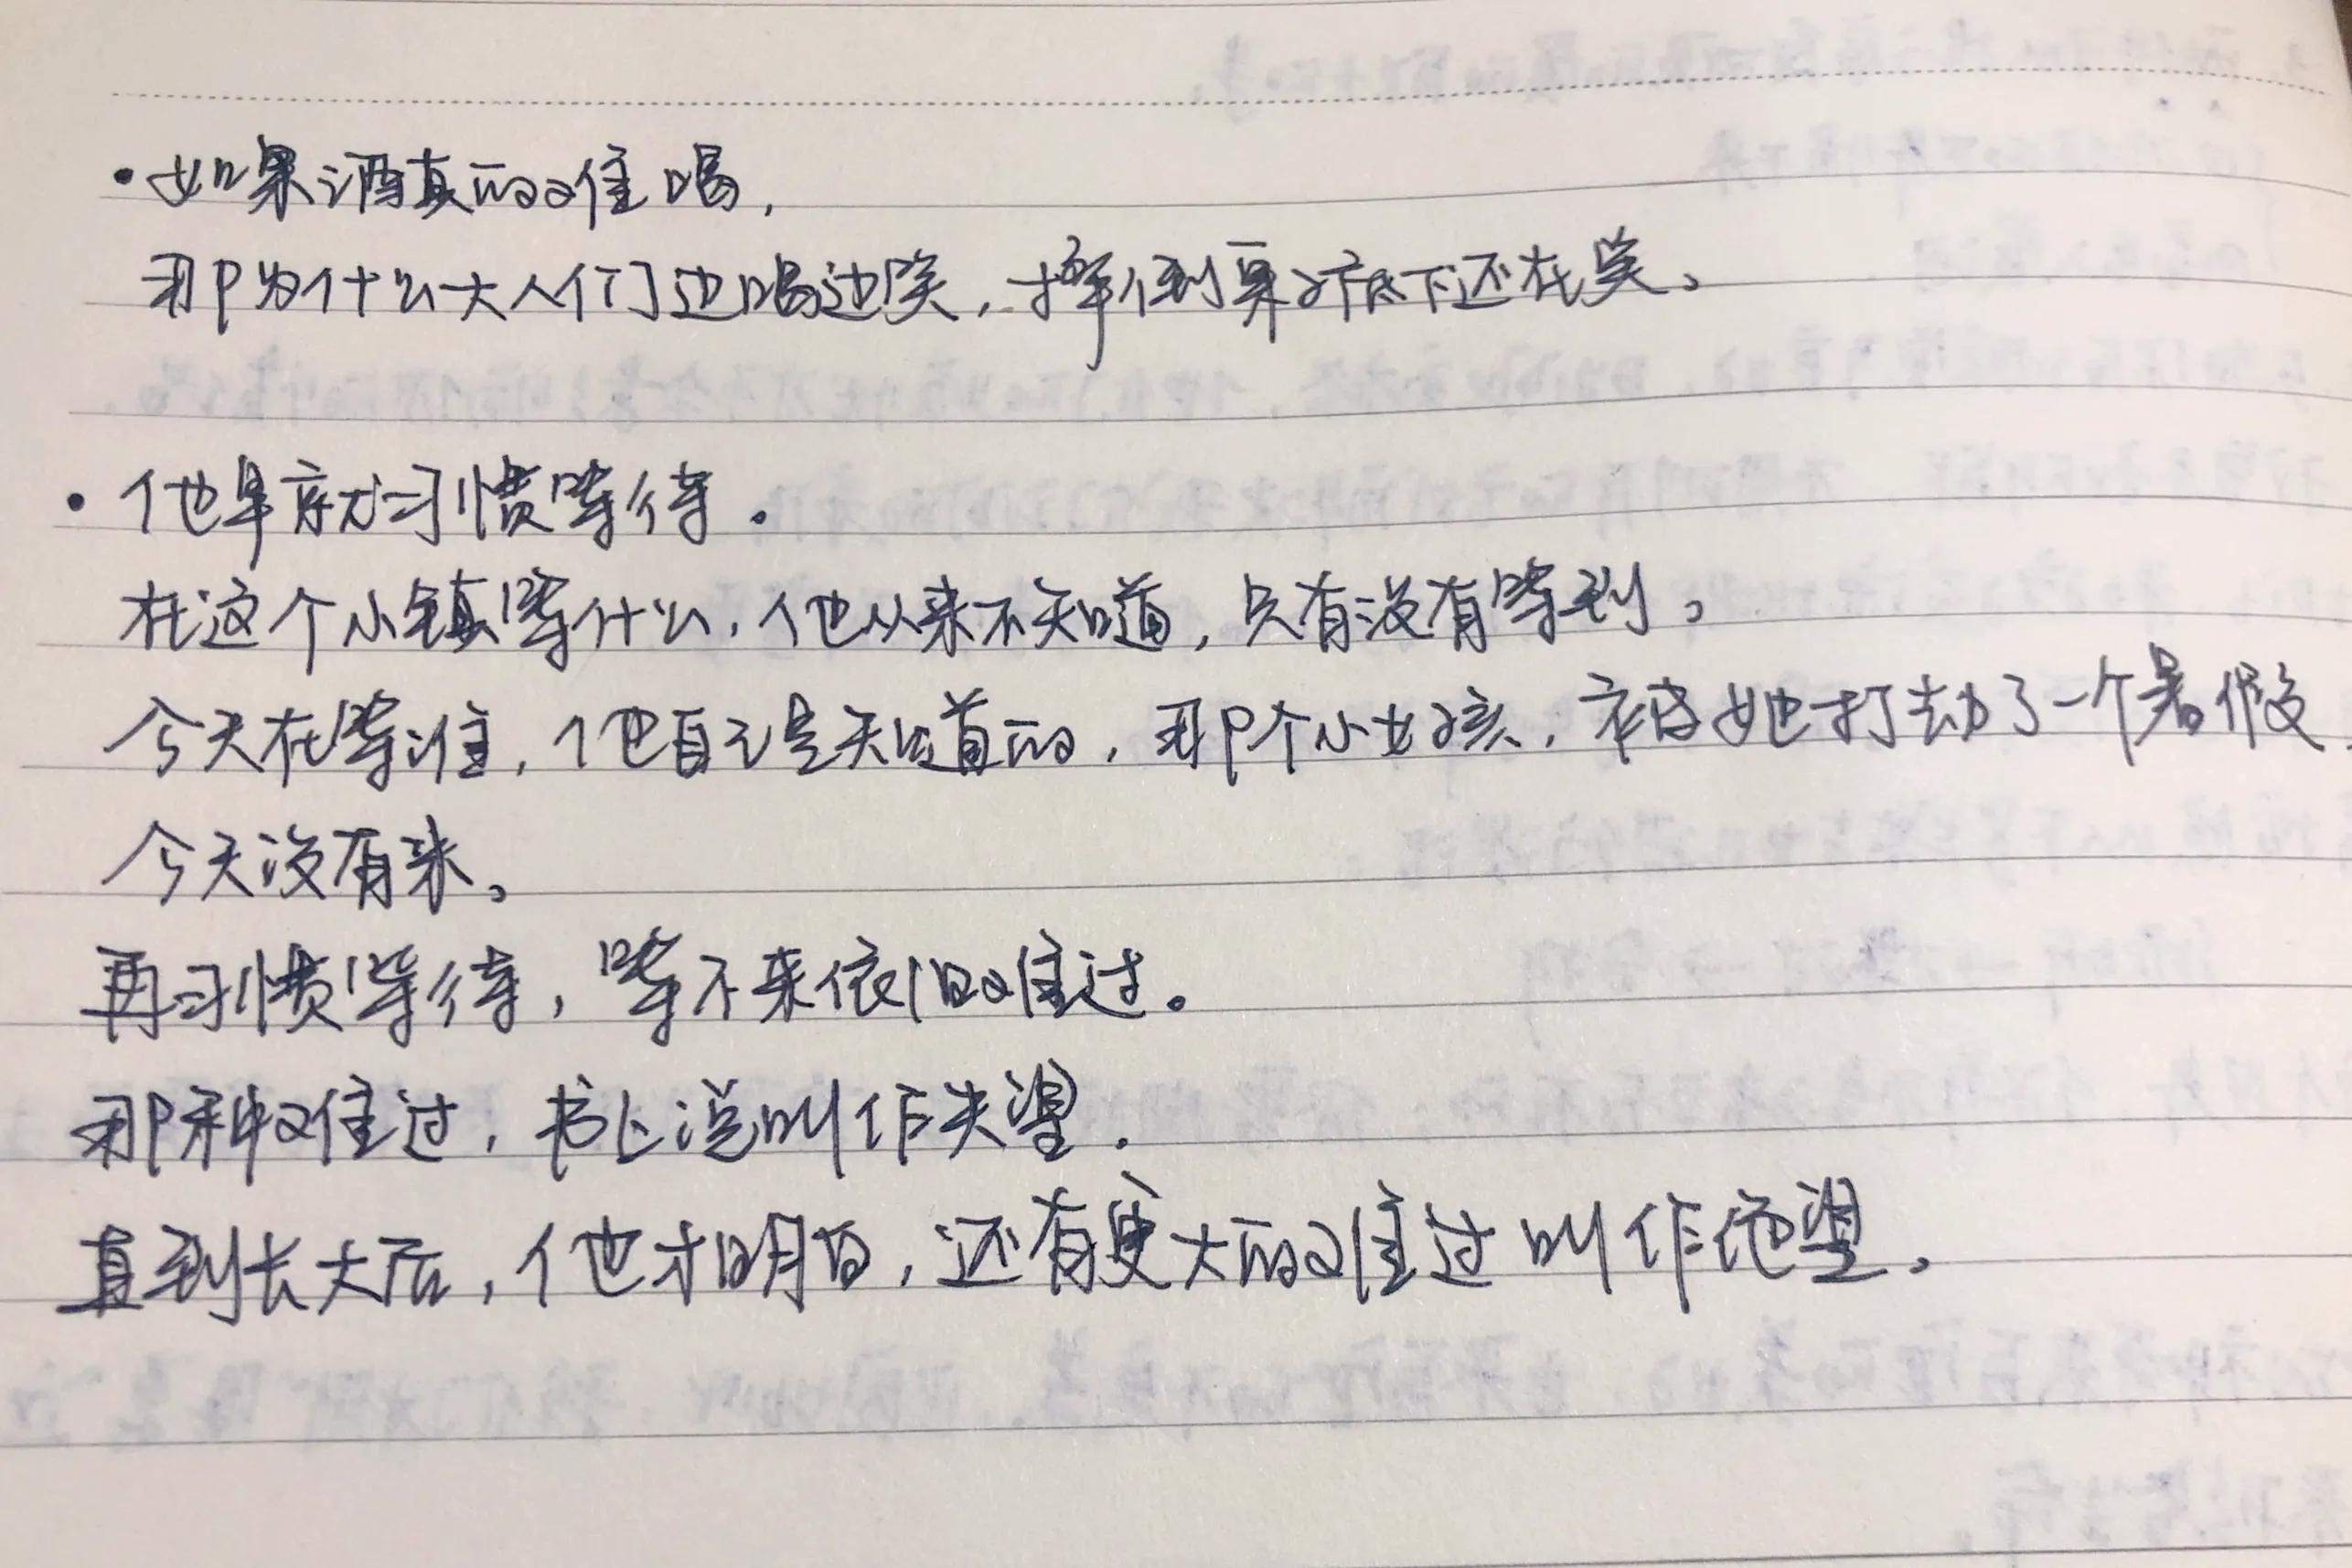 ·如果酒真的难喝，
那为什么大人们边喝边笑，摔倒桌底下还在笑。
·他早就习惯等待。
在这个小镇等什么，他从来不知道，只有没有等到。
今天在等谁，他自己是知道的，那个小女孩，被她打劫了一个暑假，
今天没有来。
再习惯等待，等不来依旧难过。
那种难过，书上说叫作失望。
直到长大后，他才明白，还有更大的难过叫作绝望。